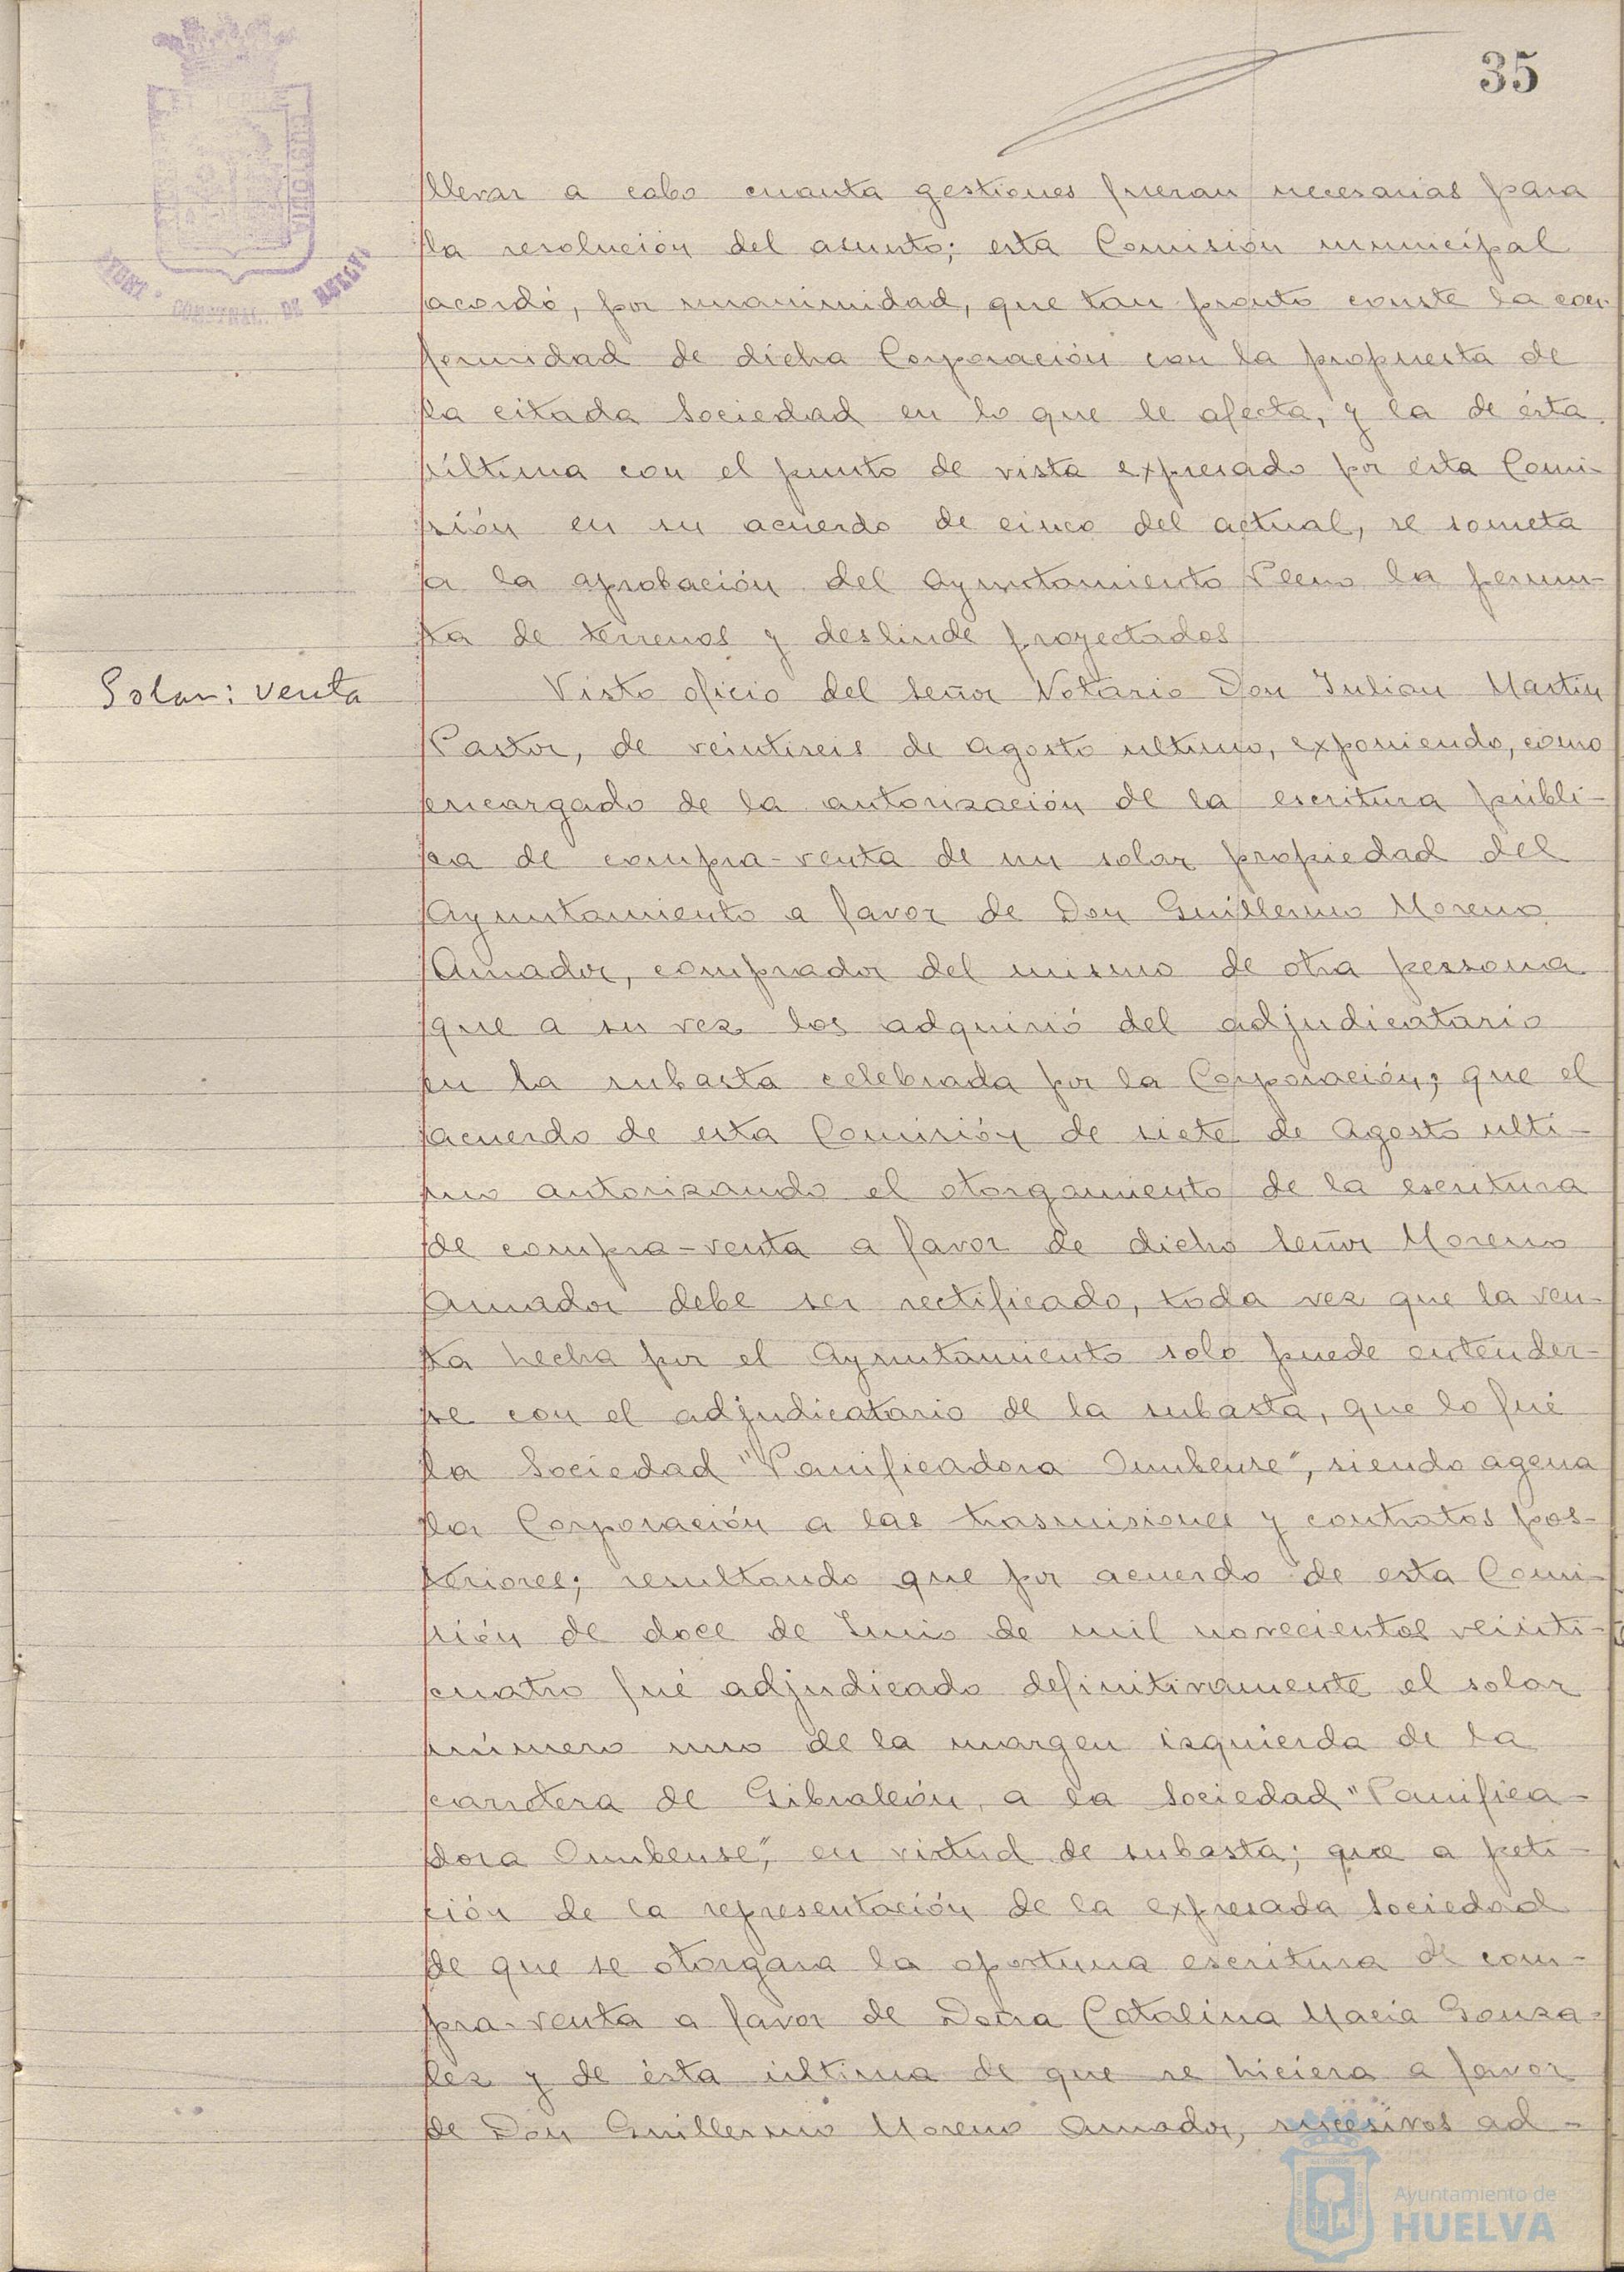 35
llevar a cabo cuanta gestiones fueran necesarias para
la resolución del asunto; esta Comisión municipal
acordó, por unanimidad, que tan pronto conste la con-
formidad de dicha Corporación con la propuesta de
la citada Sociedad en lo que le afecta, y la de ésta
última con el punto de vista expresado por esta Comi-
sión en su acuerdo de cinco del actual, se someta
a la aprobación del Ayuntamiento Pleno la permu-
ta de terrenos y deslinde proyectados
Solar: venta
Visto oficio del Señor Notario Don Julian Martin
Pastor, de veintiseis de agosto ultimo, exponiendo, como
encargado de la autorización de la escritura públi-
ca de compra-venta de un solar propiedad del
Ayuntamiento a favor de Don Guillermo Moreno
Amador, comprador del mismo de otra persona
que a su vez los adquirió del adjudicatario
en la subasta celebrada por la Corporación; que el
acuerdo de esta Comisión de siete de Agosto ulti-
mo autorizando el otorgamiento de la escritura
de compra-venta a favor de dicho Señor Moreno
Amador debe ser rectificado, toda vez que la ven-
ta hecha por el Ayuntamiento solo puede entender-
se con el adjudicatario de la subasta, que lo fué
la Sociedad "Panificadora Onubense", siendo agena
la Corporación a las trasmisiones y contratos pos-
teriores; resultando que por acuerdo de esta Comi-
sión de doce de Junio de mil novecientos veinti-
cuatro fué adjudicado definitivamente el solar
número uno de la margen izquierda de la
carretera de Gibraleón, a la Sociedad "Panifica-
dora Onubense", en virtud de subasta; que a peti-
ción de la representación de la expresada Sociedad
de que se otorgara la oportuna escritura de com-
pra-venta a favor de Doña Catalina Macia Gonza-
lez y de ésta última de que se hiciera a favor
de Don Guillermo Moreno Amador, sucesivos ad-
AYUNT. CONSTNAL. DE HUELVA
Ayuntamiento de
HUELVA